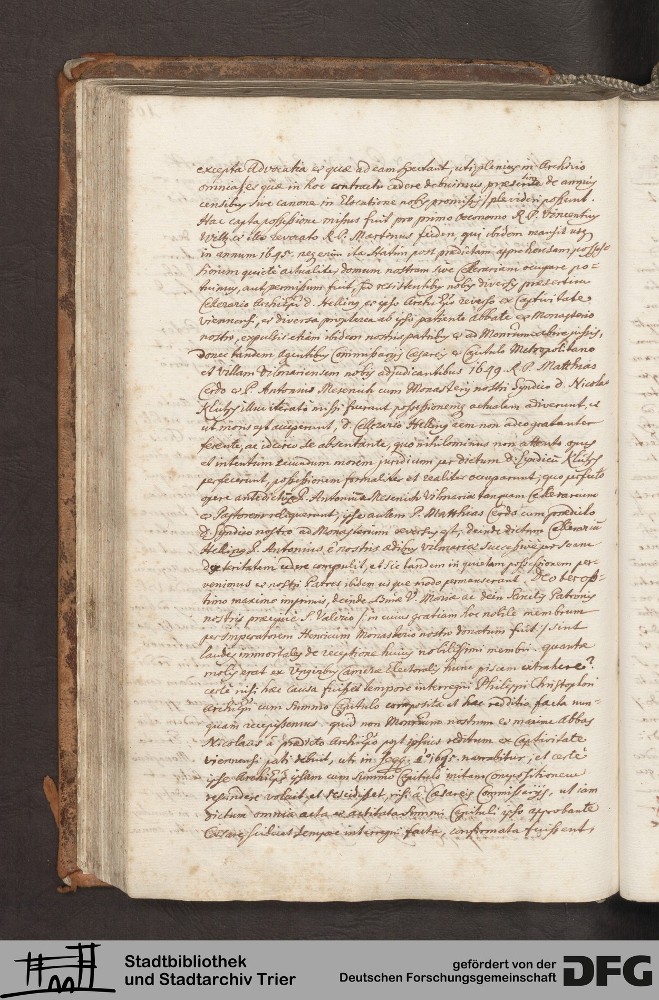 excepta Advocatia et quæ ad eam spectant, uti plenius in Archivio
omnia et quæ in hoc contractu cedere debuimus præsertim de annuis
censibus sive canone in Elocatione nobis promissis videri possunt.
Hac capta possessione missus fuit pro primo oeconomo R. P. Vincentius
et illo revocato R. P. Martinus feiden, qui ibidem mansit usq
in annum 1645. neq enim ita statim post prædictam apprehensam posses-
sionem quietè actualiter domum nostram sive Cellerariam occupare po-
tuimus, aut permissum fuit, sed resistentibus nobis diversis præsertim
Cellerario Archiepi D. Helling et ipso Archiepo reverso ex Captivitate
viennensi, et diversa propterea ab ipso patiente Abbate et Monasterio
nostro, expulsis etiam ibidem nostris patribus et ad Monrium redire jussis,
donec tandem agentibus Commissarijs Cæsareis et Capitulo Metropolitano
et Villam Vilmariensem nobis adjudicantibus 1649. R. P. Matthias
Cerdo et P. Antonius Mesenich cum Monasterij nostri Syndico D. Nicolao
Klutz illuc iterato missi fuerunt possessionem actualem adiverunt, et
ut moris est acceperunt, D. Cellerario Helling rem non adeo gratanter
ferente, ac idcirco se absentante, quo nihilominus non attento opus
et intentum secundum morem juridicum per dictum D. Syndicum Klutz
perfecerunt, possessionem formaliter et realiter occuparunt; quo perfecto
opere antedictum P. Antonium Mesenich Vilmariæ tanquam Cellerarium
et Pastorem reliquerunt, ipse autem P. Matthias Cerdo cum prædicto
D. Syndico nostro ad Monasterium reversus est, deinde dictum Cellerarium
Helling P. Antonius è nostris ædibus Vilmariæ successivè per suam
dexteritatem cedere compulit, et sic tandem in quietam possessionem per-
venimus et nostri Patres ibidem usque modo permanserunt. Deo ter op-
timo maximo imprimis, deinde Bmæ V. Mariæ ac dein Sanctis Patronis
nostris præcipuè S. Valerio /: in cuius gratiam hoc nobile membrum
per Imperatorem Henricum Monasterio nostro donatum fuit :/ sint
laudes immortales de receptione huius nobilissimi membri. quanta
molis erat ex unguibus Cameræ Electoralis hunc piscem extrahere?
certè nisi hæc causa fuisset tempore interregni Philippi Christophori
Archiepi cum summo Capitulo composita et hæc reditio facta nun-
quam recepissemus. quid non Monrium nostrum et maximè Abbas
Nicolaus à prædicto Archiepo post ipsius reditum ex Captivitate
viennensi pati debuit, uti in seqq. aº 1645. narrabitur, et certè
ipse Archiepus ipsam cum summo Capitulo initam Compositionem
rescindere voluit et rescidisset, nisi à Cæsareis Commissarijs, ut iam
dictum omnia acta et actitata summi Capituli ipso approbante
Cæsare tempore interregni facta, confirmata fuissent,
Stadtbibliothek
und Stadtarchiv Trier
gefördert von der
Deutschen Forschungsgemeinschaft
DFG